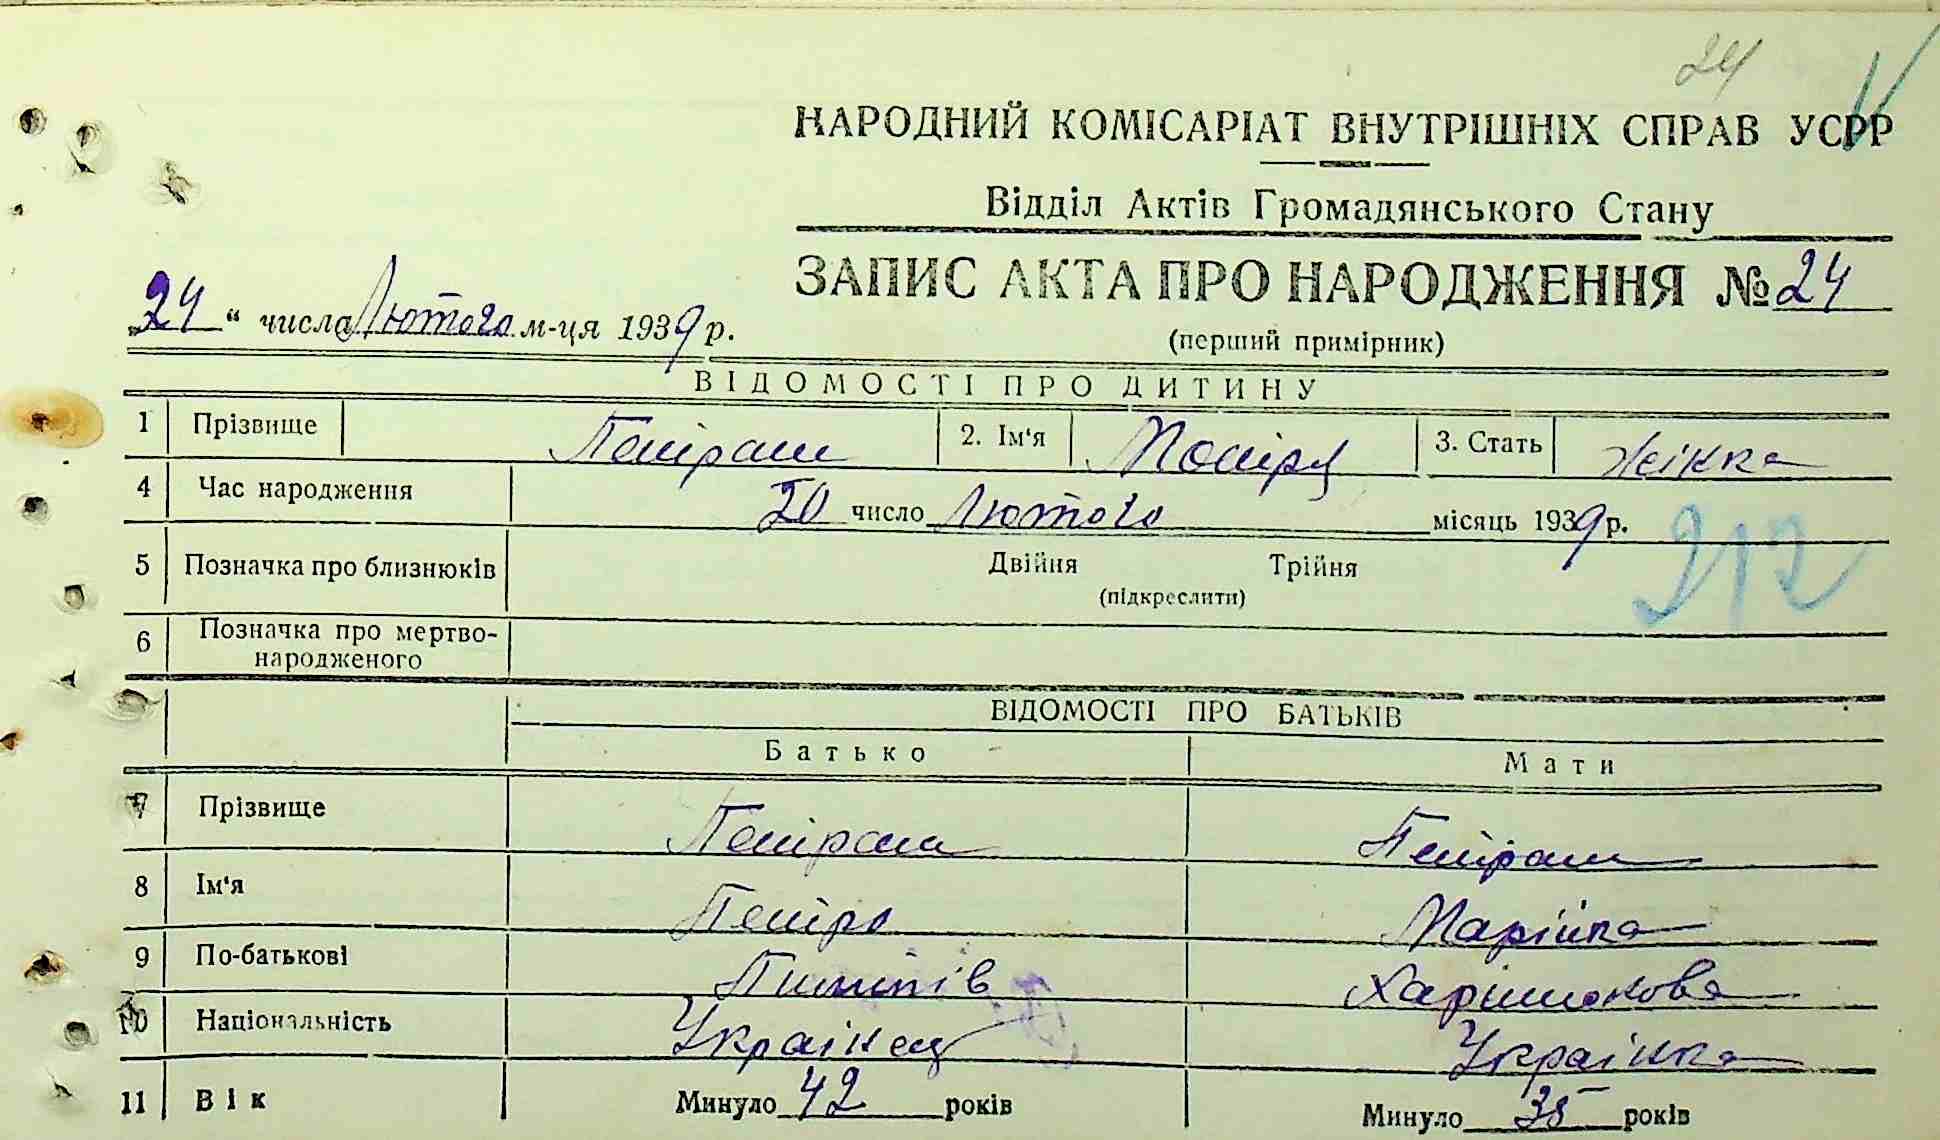 24
НАРОДНИЙ КОМІСАРІАТ ВНУТРІШНІХ СПРАВ УСРР
Відділ Актів Громадянського Стану
ЗАПИС АКТА ПРО НАРОДЖЕННЯ № 24
„24“ числа Лютого м-ця 1939 р.
(перший примірник)
ВІДОМОСТІ ПРО ДИТИНУ
1 Прізвище Петраш 2. Ім‘я 3. Стать жінка
4 Час народження 20 число Лютого місяць 1939 р.
212
5 Позначка про близнюків Двійня Трійня
(підкреслити)
6 Позначка про мертво-
народженого
ВІДОМОСТІ ПРО БАТЬКІВ
Батько Мати
7 Прізвище Петраш Петраш
8 Ім‘я Петро Марійка
9 По-батькові Пилипів Харитонова
10 Національність Українец Українка
11 Вік Минуло 42 років Минуло 35 років